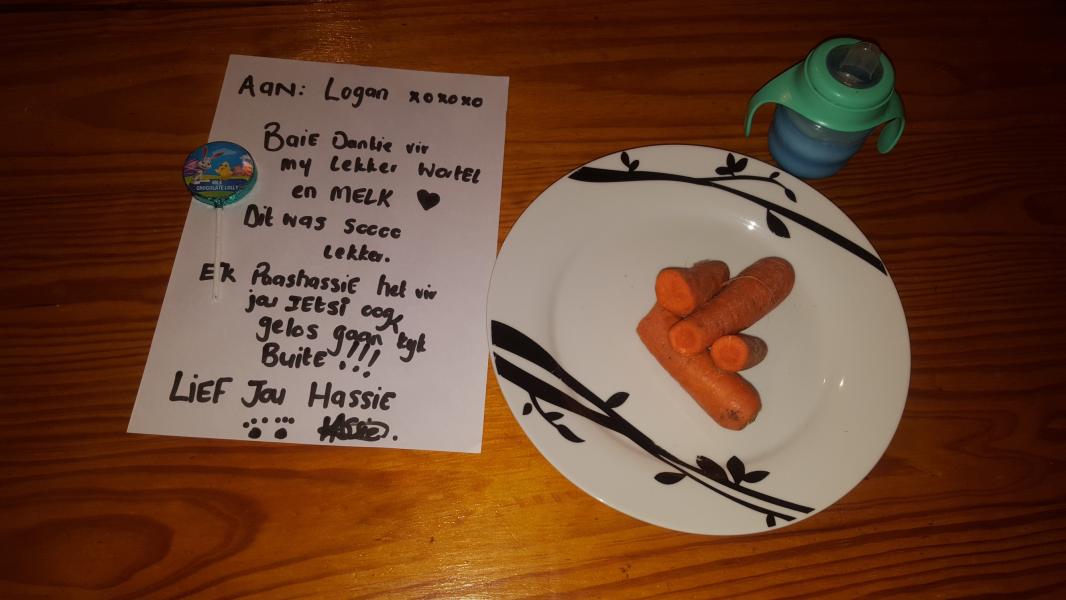 Aan: Logan xoxoxo
Baie Dankie vir
my Lekker Wortel
en MELK ♥
Dit was soooo
Lekker.
Ek Paashassie het vir
jou IETSI oog
gelos gaan kyk
Buite !!!
LIEF Jou Hassie
HASSIE.
MILK
CHOCOLATE LOLLY